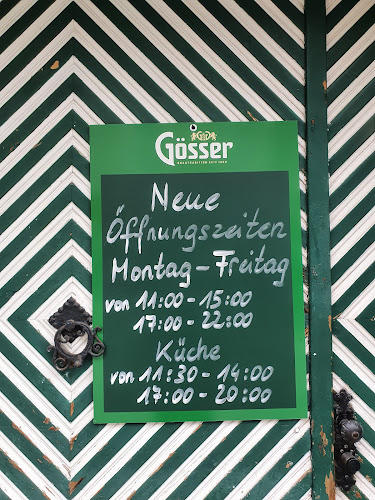 Gösser
Neue
Öffnungszeiten
Montag – Freitag
von 11:00 – 15:00
17:00 – 22:00
Küche
von 11:30 – 14:00
17:00 – 20:00